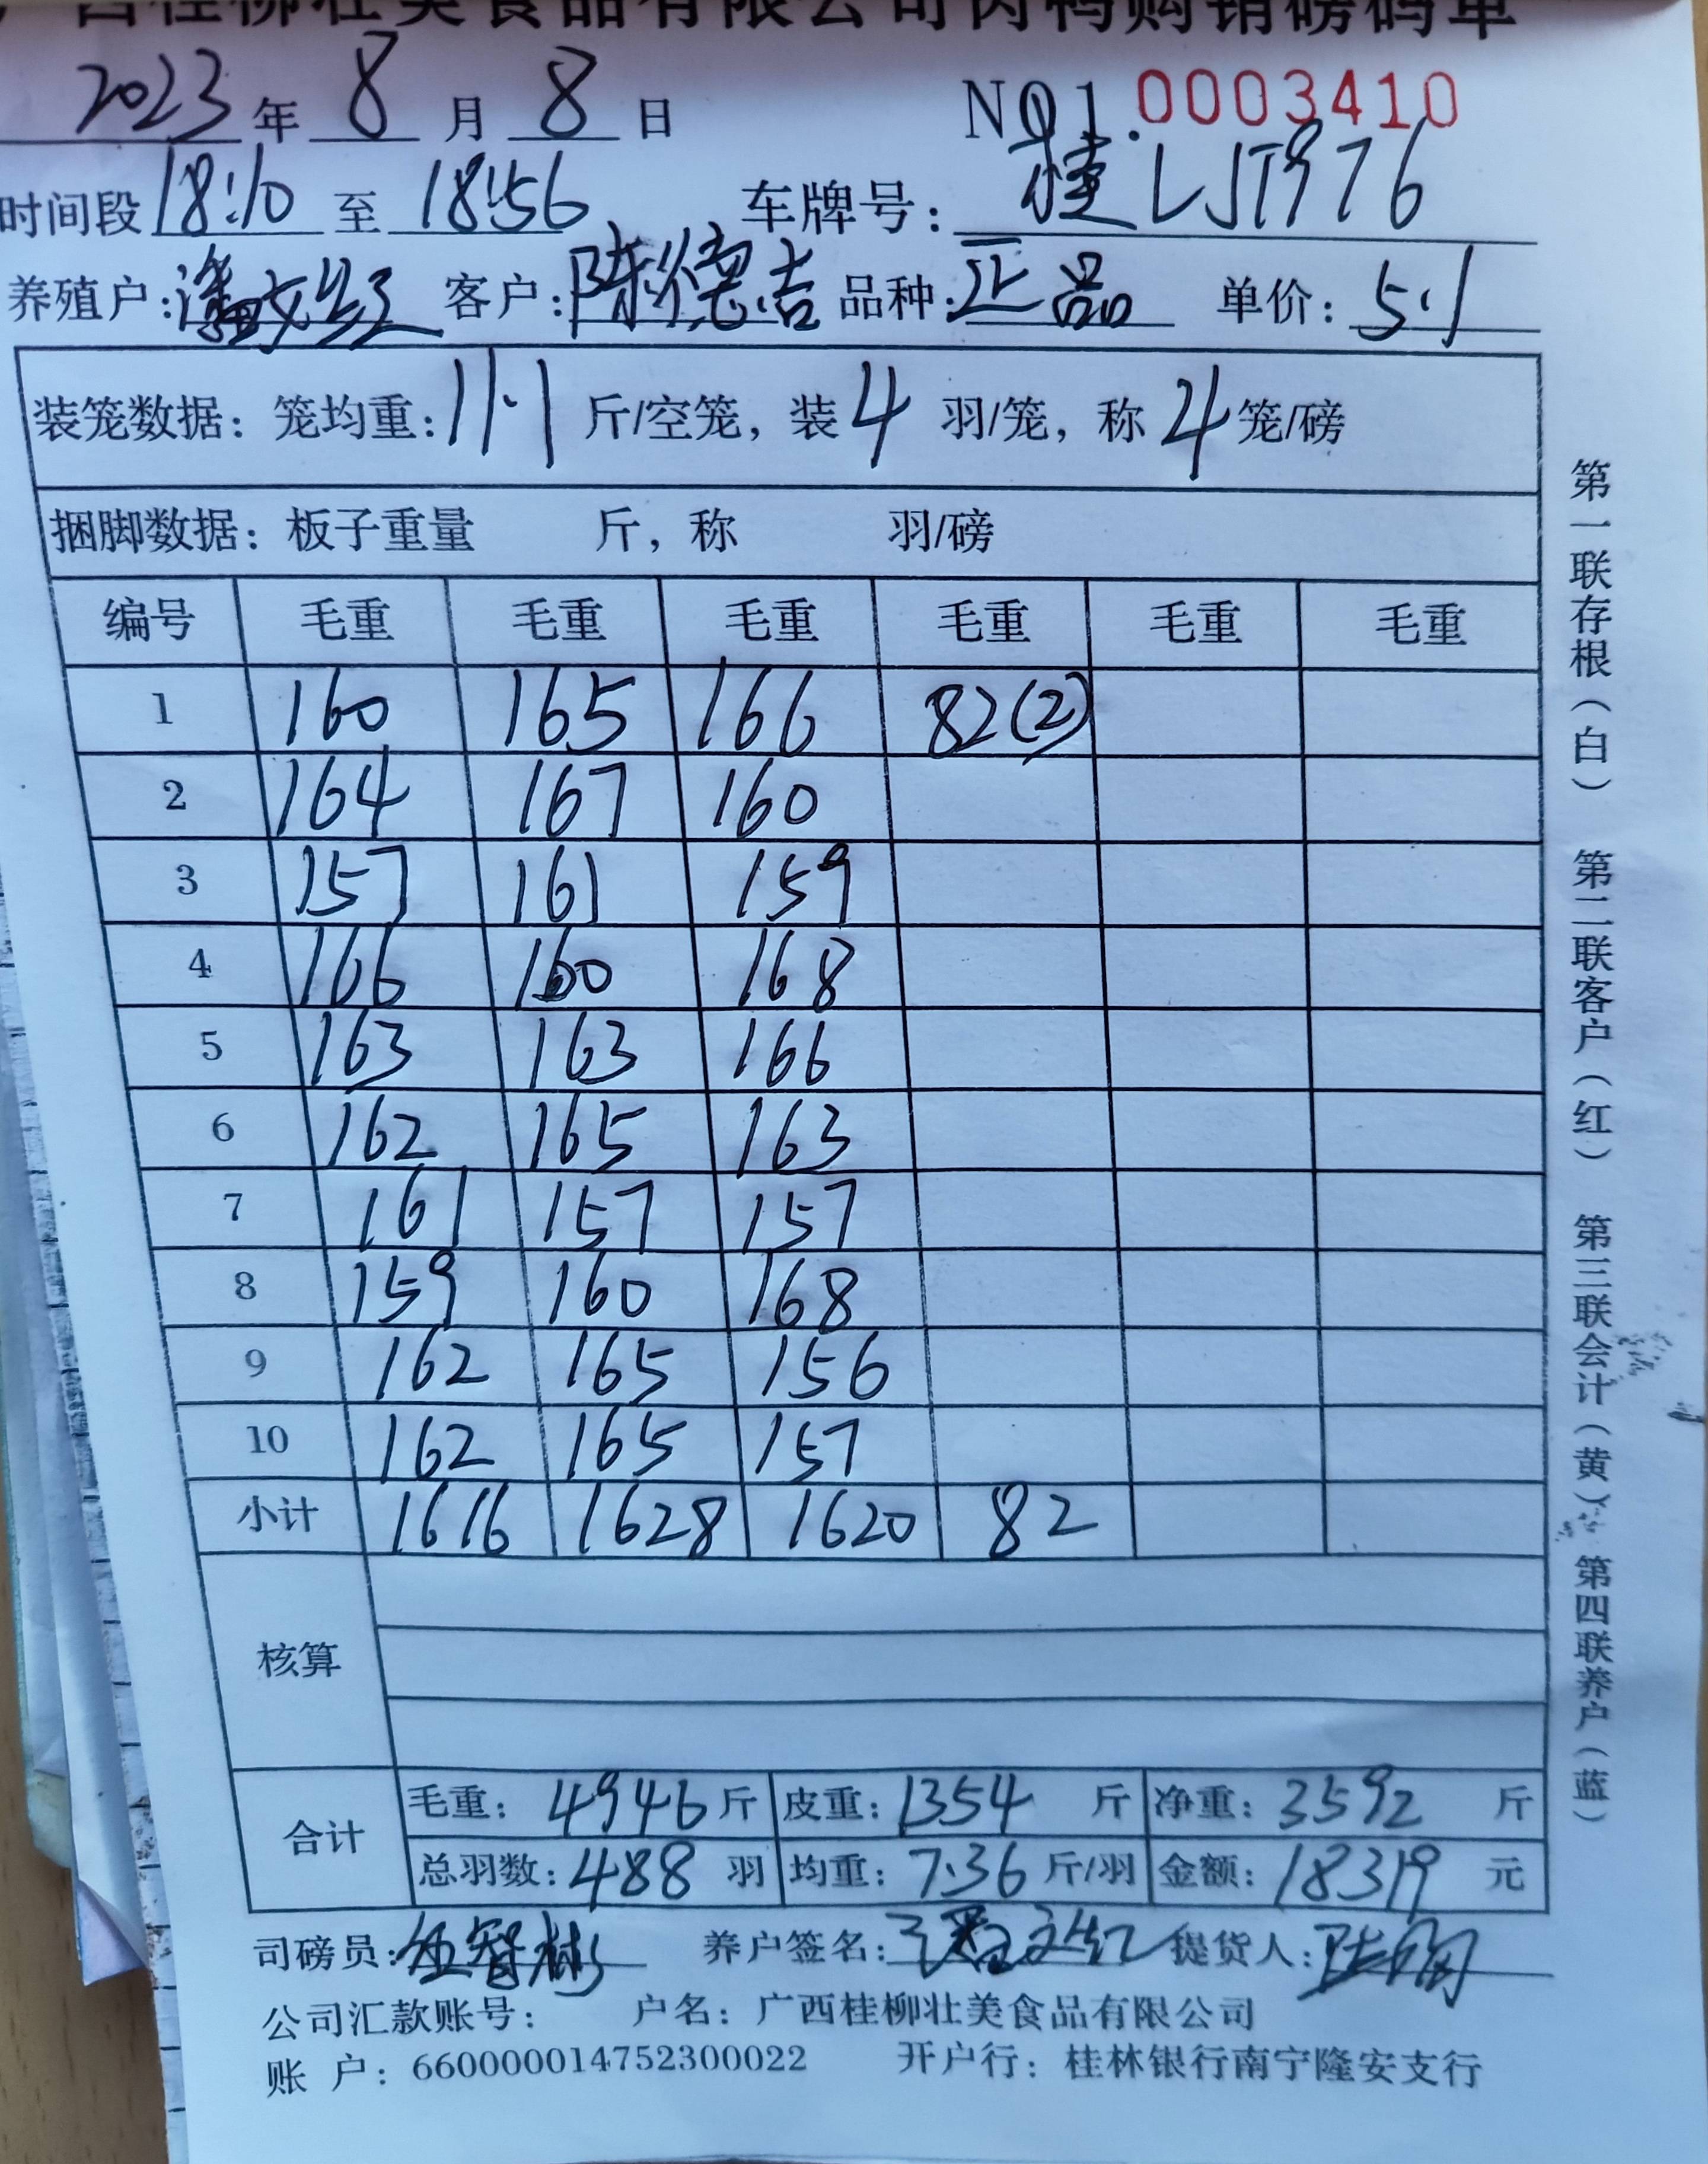 广西桂柳壮美食品有限公司肉鸭购销磅码单
2023年 8月 8日 NO1.0003410
时间段 18:10 至 18:56 车牌号: 桂LJT976
养殖户: 潘文红 客户: 陈德吉 品种: 正品 单价: 5.1
装笼数据: 笼均重: 11.1 斤/空笼, 装 4 羽/笼, 称 4 笼/磅
捆脚数据: 板子重量 斤, 称 羽/磅
编号 毛重 毛重 毛重 毛重 毛重 毛重
1 160 165 166 82(2)
2 164 167 160
3 157 161 159
4 166 160 168
5 163 163 166
6 162 165 163
7 161 157 157
8 159 160 168
9 162 165 156
10 162 165 157
小计 1616 1628 1620 82
核算
合计 毛重: 4946 斤 皮重: 1354 斤 净重: 3592 斤
总羽数: 488 羽 均重: 7.36 斤/羽 金额: 18319 元
司磅员: 智彬 养户签名: 潘文红 提货人:
公司汇款账号: 户名: 广西桂柳壮美食品有限公司
账 户: 660000014752300022 开户行: 桂林银行南宁隆安支行
第一联存根(白) 第二联客户(红) 第三联会计(黄) 第四联养户(蓝)